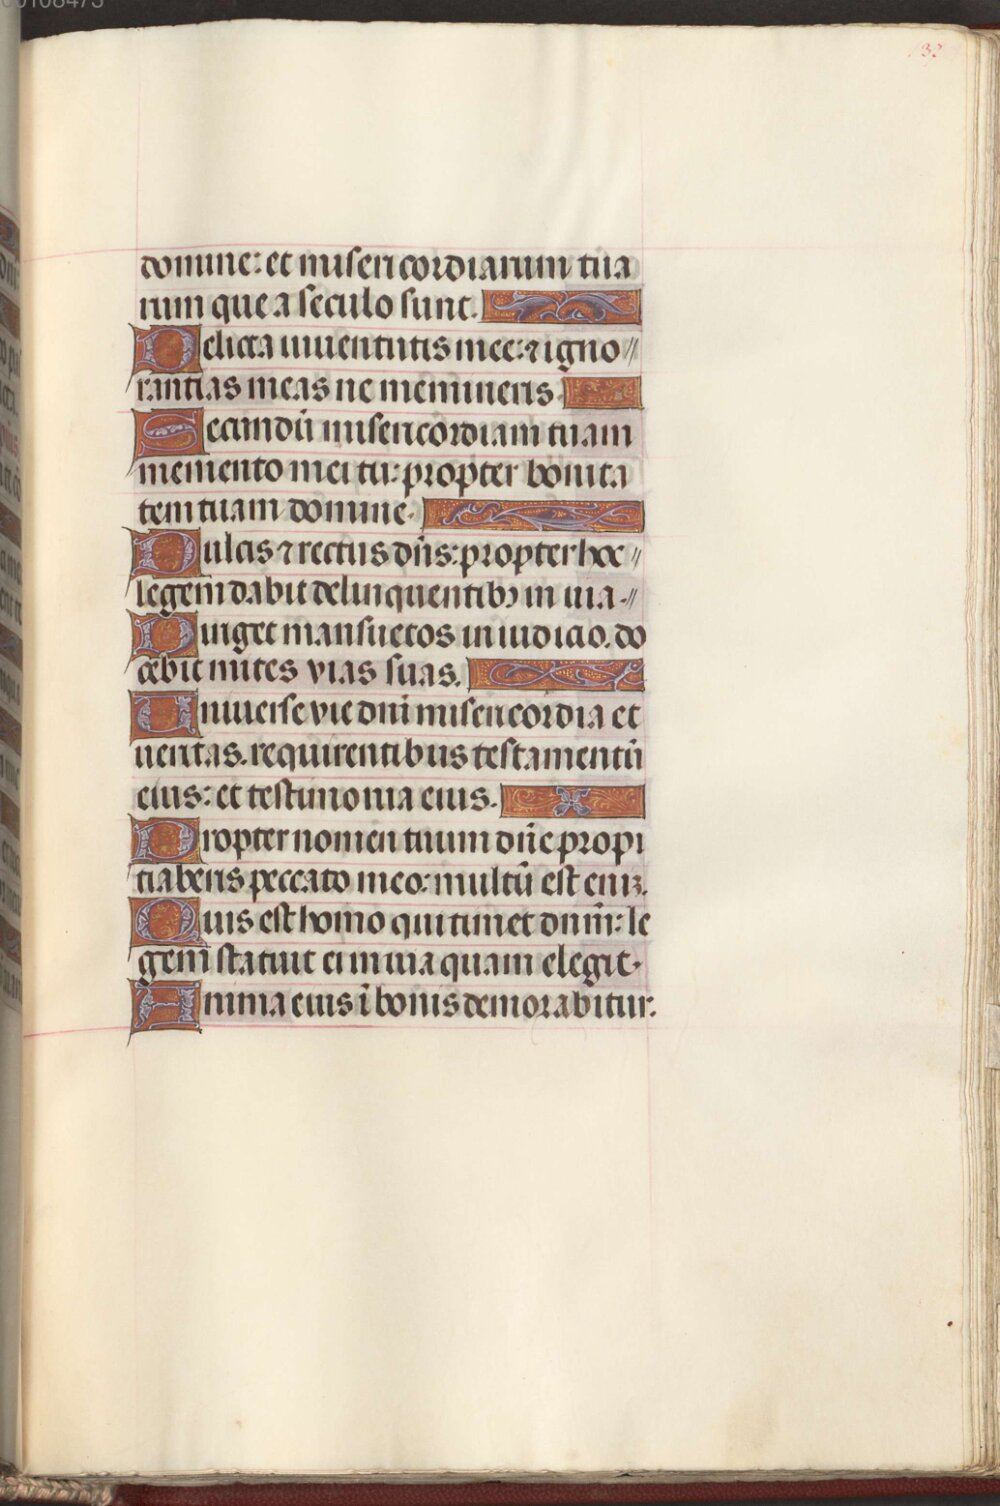 133
domine: et misericordiarum tua
rum que a seculo sunt.
Delicta iuuentutis mee: ⁊ igno//
rantias meas ne memineris
Secundū misericordiam tuam
memento mei tu: propter bonita
tem tuam domine.
Dulcis ⁊ rectus dn̄s: propter hoc//
legem dabit delinquentibꝫ in uia.//
Diriget mansuetos in iudicio. do
cebit mites vias suas.
Uniuerse vie dn̄i misericordia et
ueritas. requirentibus testamentū
eius: et testimonia eius.
Propter nomen tuum dn̄e propi
tiaberis peccato meo: multū est eniꝫ.
Quis est homo qui timet dnm̄: le
gem statuit ei in uia quam elegit.
Anima eius ī bonis demorabitur.